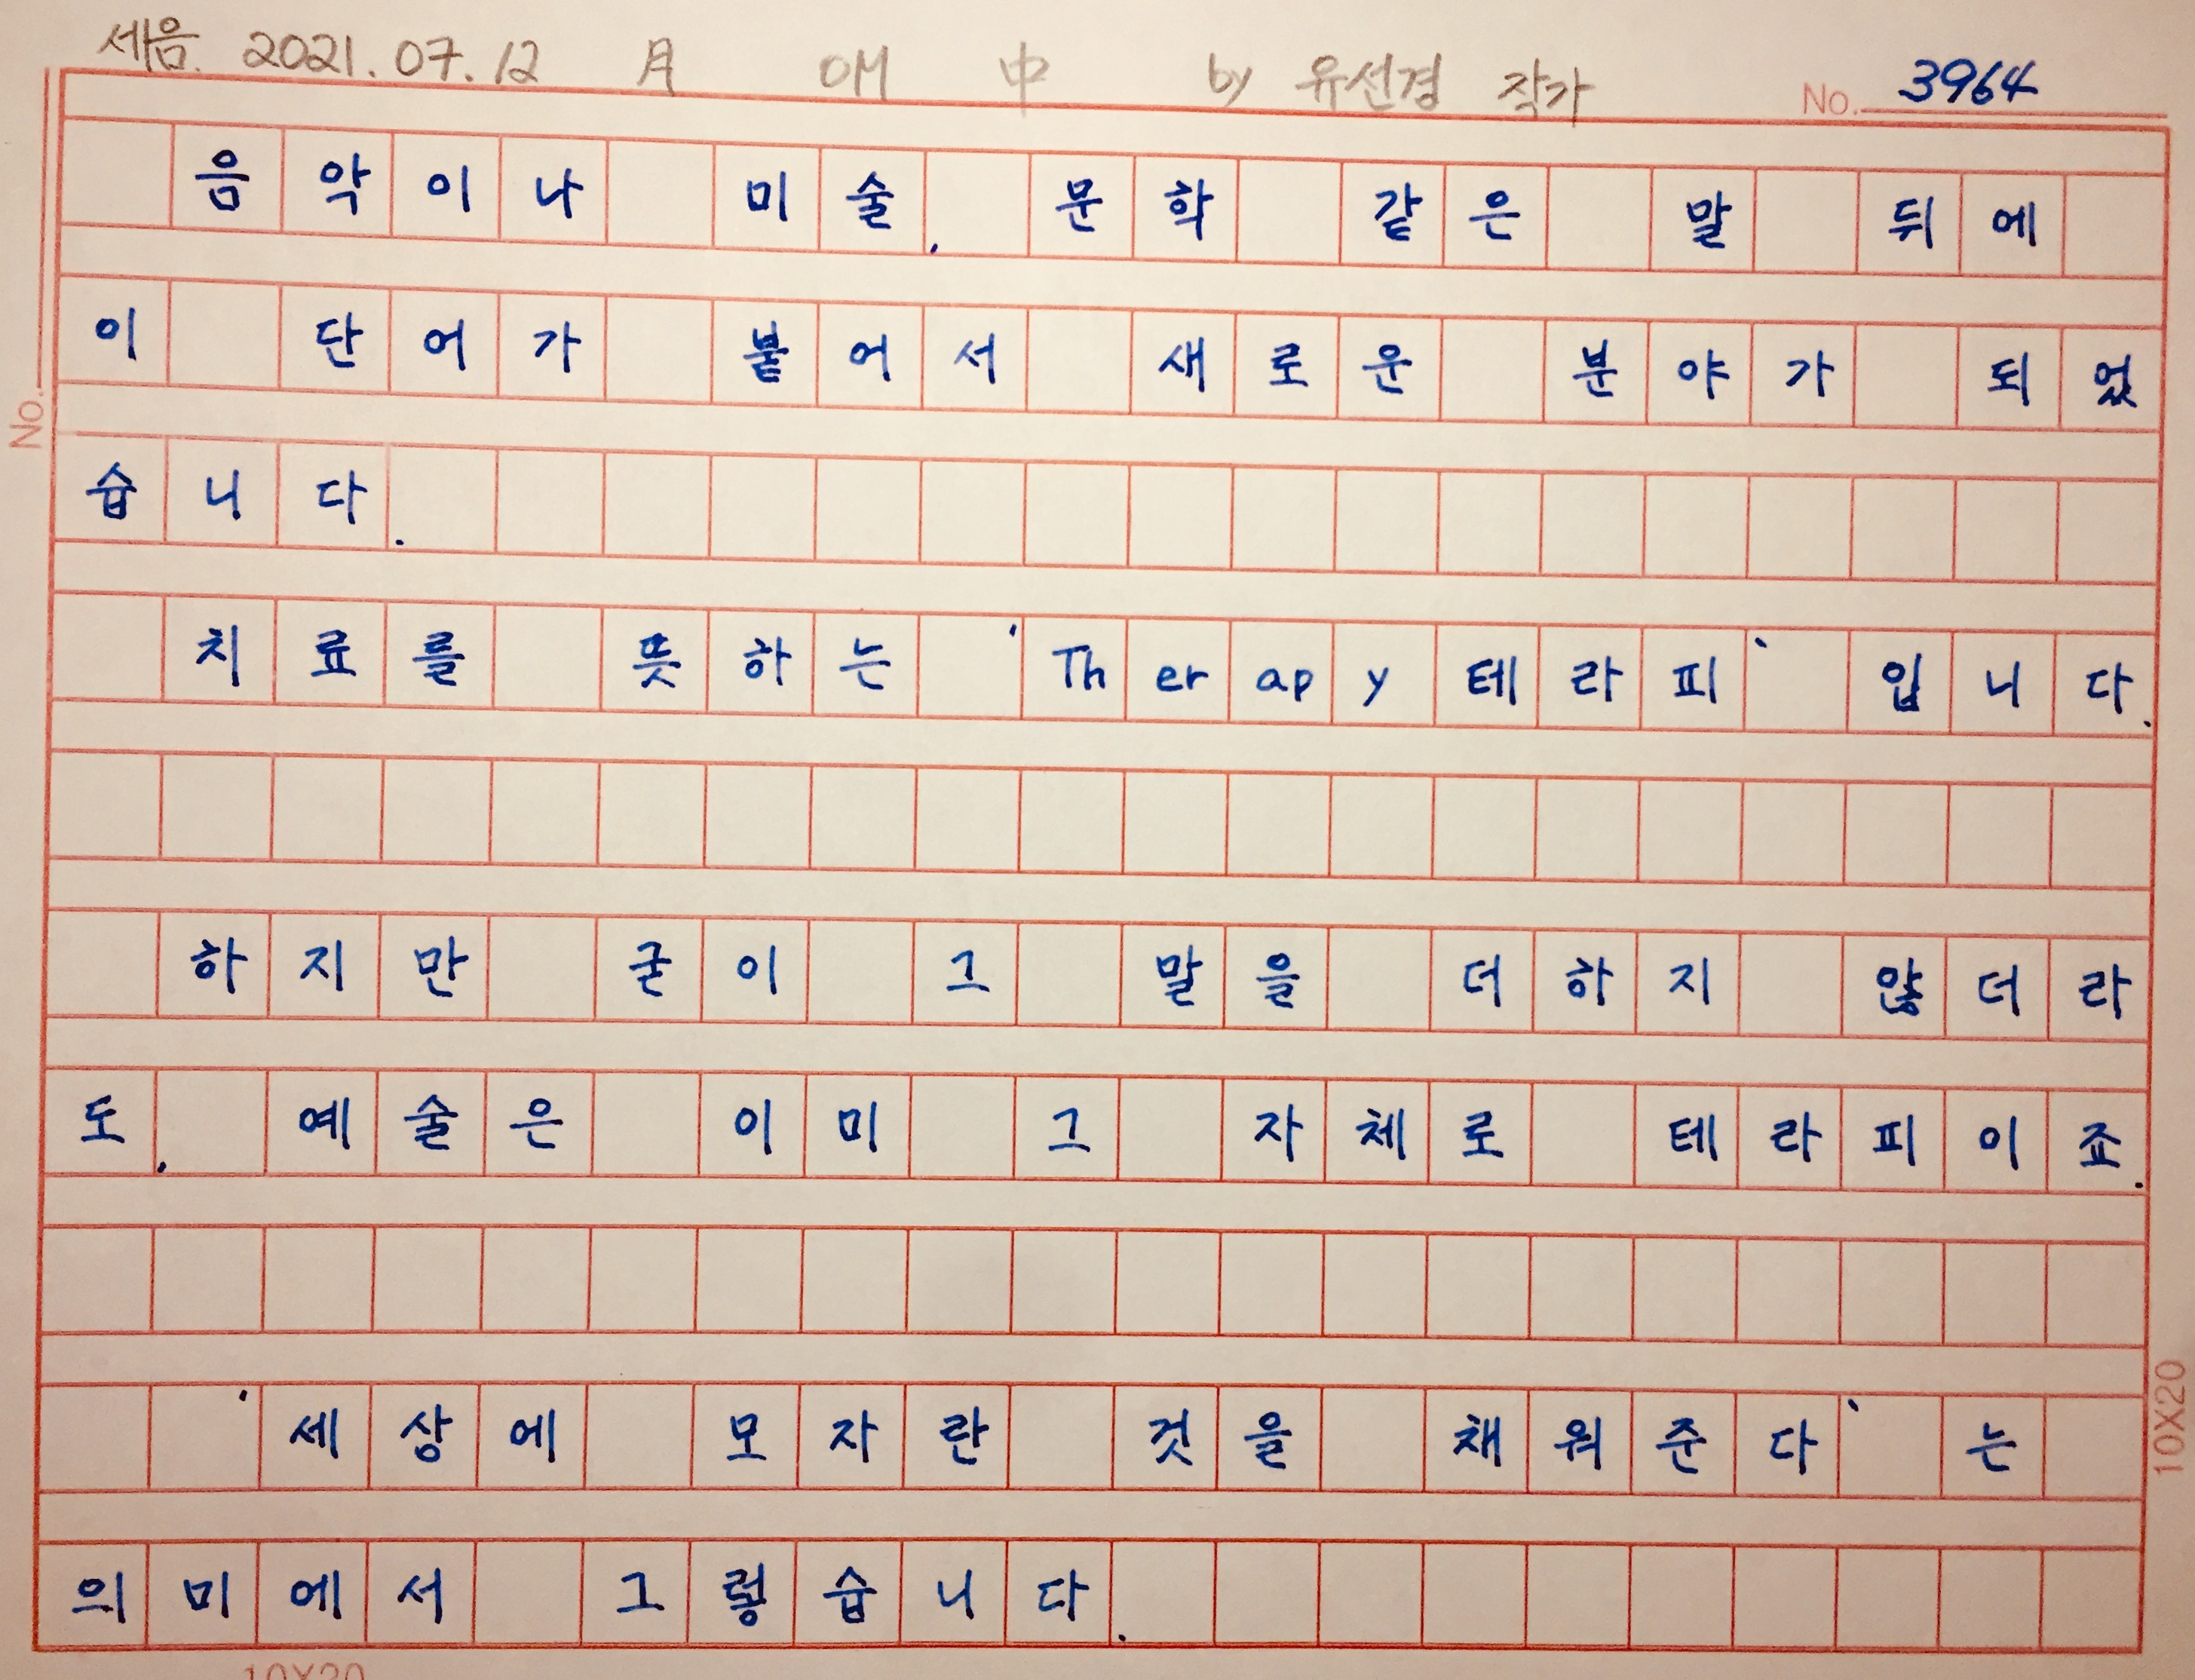 세음. 2021.07.12 月 OM 中 by 유선경 작가 No. 3964
음악이나 미술, 문학 같은 말 뒤에
이 단어가 붙어서 새로운 분야가 되었
습니다.
치료를 뜻하는 'Therapy테라피' 입니다.
하지만 굳이 그 말을 더하지 않더라
도, 예술은 이미 그 자체로 테라피이죠.
'세상에 모자란 것을 채워준다'는
의미에서 그렇습니다.
No.
10X20
10X20